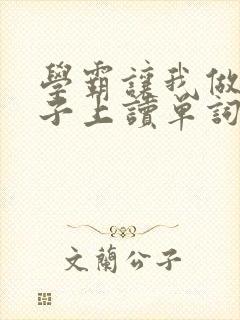 學霸讓我做
子上讀單詞
文蘭公子